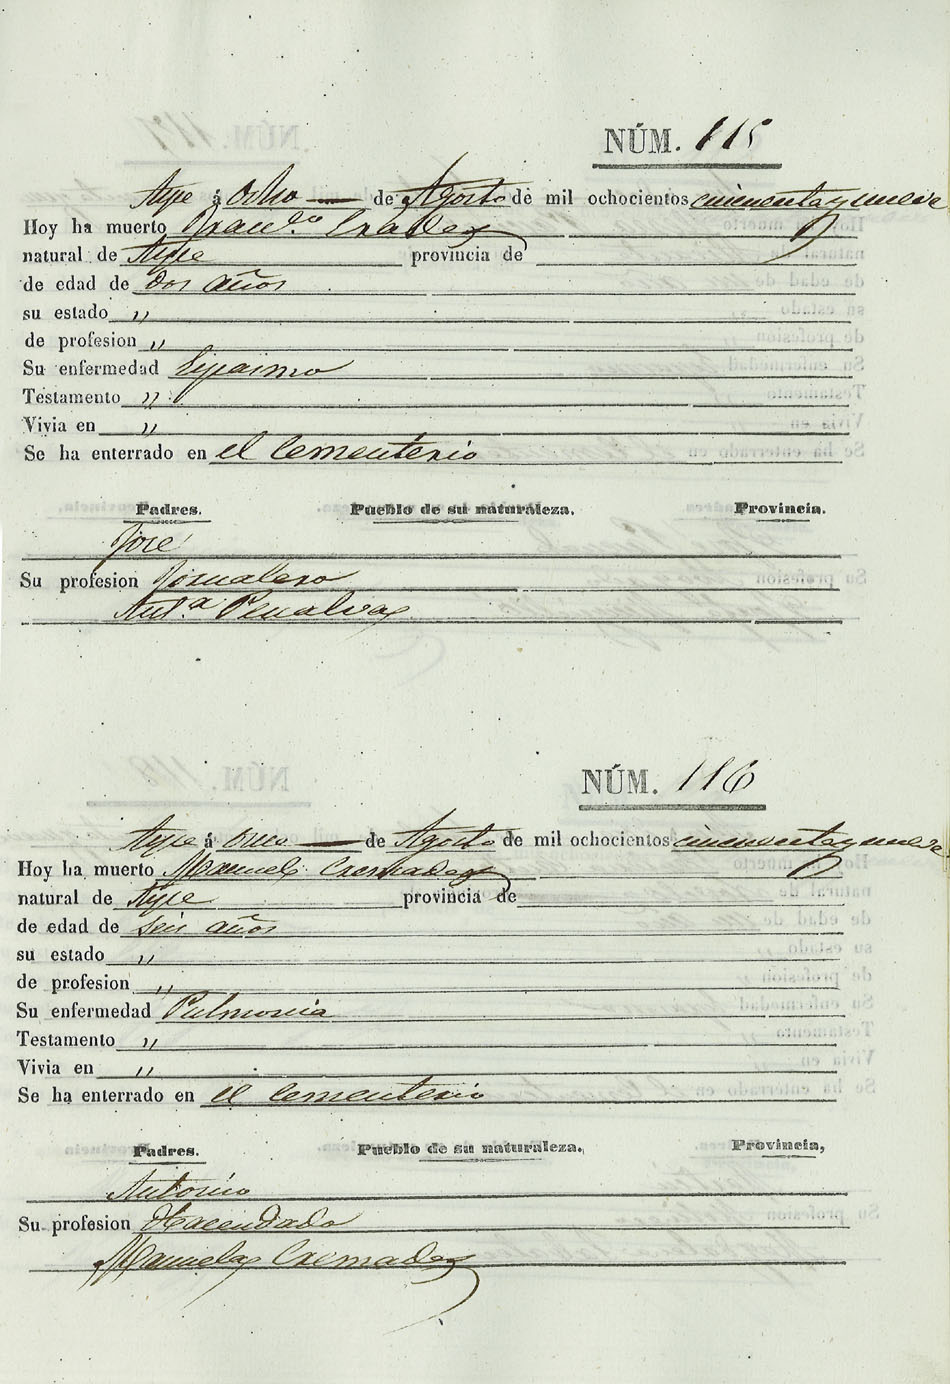 NÚM. 115
Aspe á Ocho de Agosto de mil ochocientos cincuenta y nueve
Hoy ha muerto Fran.co
natural de Aspe provincia de
de edad de dos años
su estado "
de profesion "
Su enfermedad
Testamento "
Vivia en "
Se ha enterrado en el Cementerio
Padres. Pueblo de su naturaleza. Provincia.
José
Su profesion Jornalero
Ant.a Penalva
NÚM. 116
Aspe á once de Agosto de mil ochocientos cincuenta y nueve
Hoy ha muerto Manuel Cremades
natural de Aspe provincia de
de edad de seis años
su estado "
de profesion "
Su enfermedad Pulmonia
Testamento "
Vivia en "
Se ha enterrado en el Cementerio
Padres. Pueblo de su naturaleza. Provincia,
Antonio
Su profesion Hacendado
Manuela Cremades